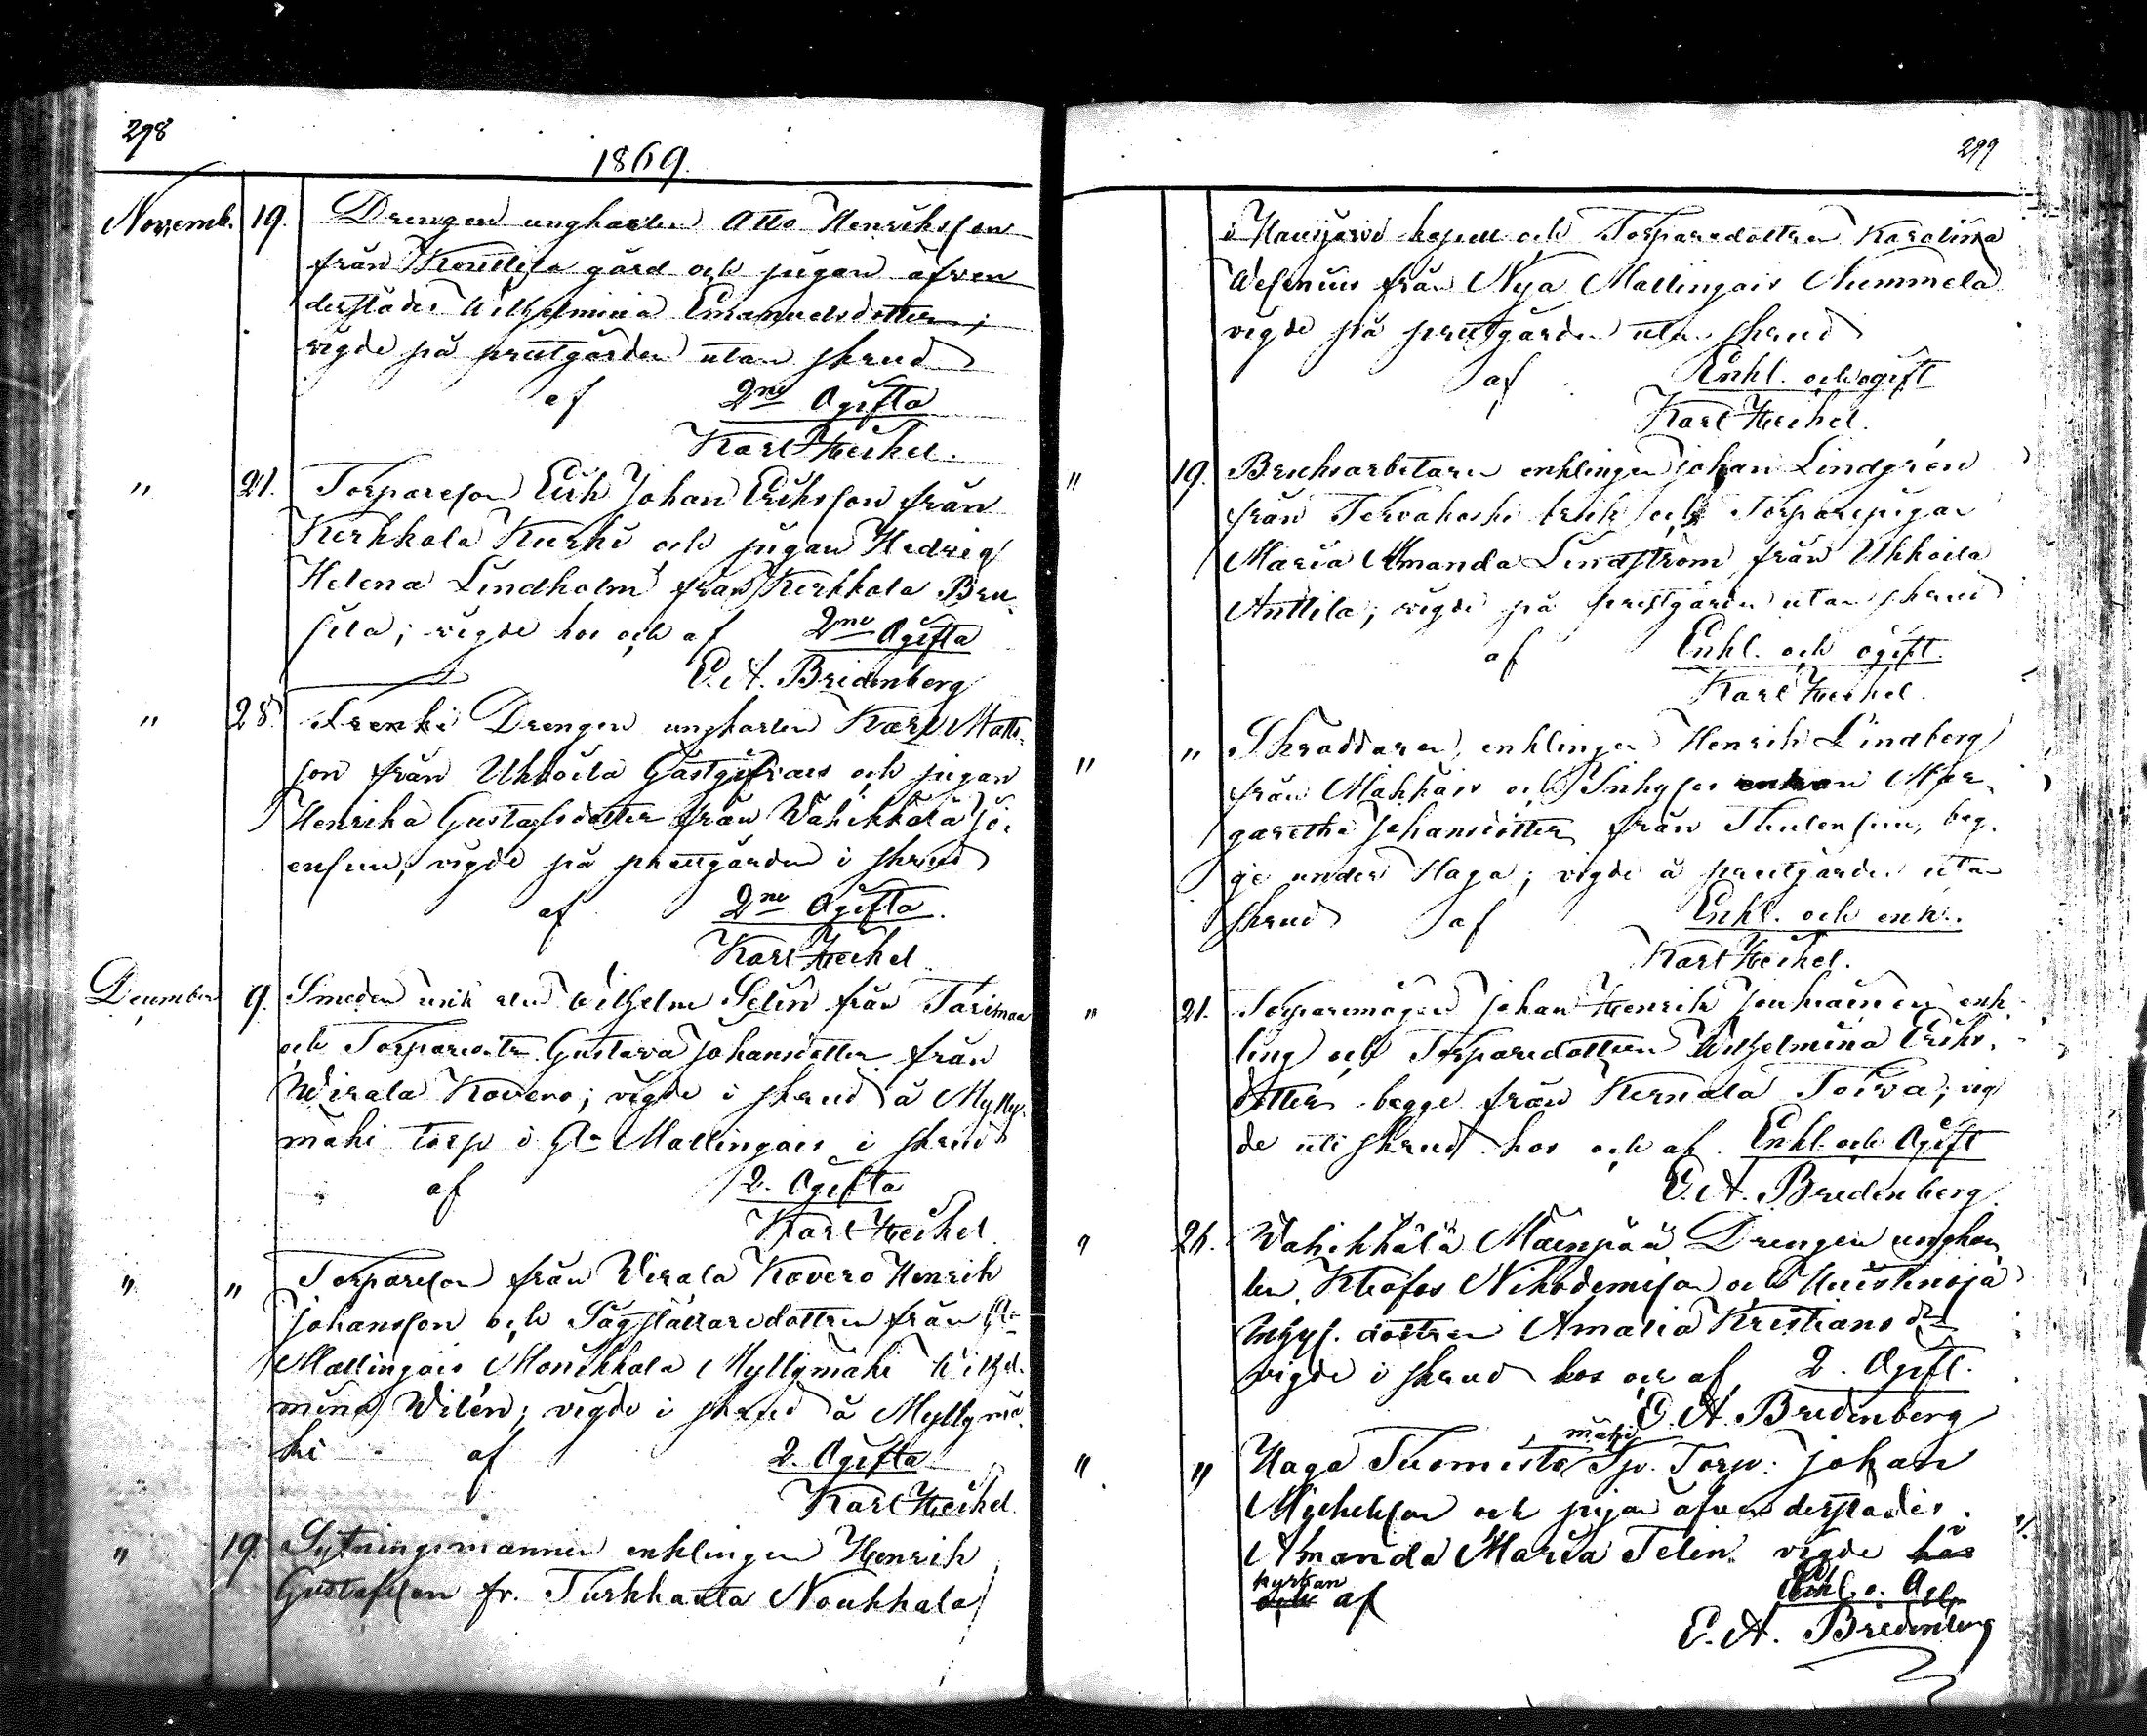 298
1869.
Novemb. 19. Drengen ungkarlen Otto Henriksson
från Konttila gård och pigan äfven
derstädes Wilhelmina Emanuelsdotter;
vigde på prestgården utan skrud
af 2ne Ogifta
Karl Heikel.
" 21. Torpareson Erik Johan Eriksson från
Kerkkola Kurki och pigan Hedvig
Helena Lindholm från Kerkkola Bru-
sila; vigde hos och af 2ne Ogifta
E. A. Bredenberg
" 28. Drengen ungkarlen Karl Matts-
son från Ukkoila Gästgifvars och pigan
Henrika Gustafsdotter från Wahikkala Jö-
ensuu, vigde på prestgården i skrud
af 2ne Ogifta.
Karl Heikel
December 9. Smeden Wilhelm Selin från Tarimaa
och Torparedtr. Gustava Johansdotter från
Wirala Kovero; vigde i skrud å Mylly-
mäki torp i Gla Mallingais i skrud
af 2. Ogifta
Karl Heikel.
" " Torpareson från Wirala Kovero Henrik
Johansson och Sågställaredottren från Gla
Mallingais Monikkala Myllymäki Wilhel-
mina Wilén; vigde i skrud å Myllymä-
ki af 2. Ogifta
Karl Heikel.
" 19. Sytningsmannen enklingen Henrik
Gustafsson fr. Turkhauta Noukkala
299
i Hausjärvi kapell och Torparedottren Karolina
Wesenius från Nya Mallingais Nummela
vigde på prestgården utan skrud
af Enkl. och ogift
Karl Heikel.
" 19. Bruksarbetaren enklingen Johan Lindgrén
från Tervakoski bruk och Torparepigan
Maria Amanda Lindström från Ukkoila
Anttila; vigde på prestgården utan skrud
af Enkl. och ogift.
Karl Heikel.
" " Skräddaren, enklingen Henrik Lindberg
från Mäkkärs och Inhyses enkan Mar-
garetha Johansdotter från Thulensuu, beg-
ge under Haga; vigde å prestgården utan
skrud af Enkl. och enk.
Karl Heikel.
" 21. Torparemågen Johan Henrik Jouhiainen enk-
ling och Torparedottren Wilhelmina Eriks-
dotter begge från Kernala Toiva; vig-
de uti skrud hos och af Enkl. och Ogift
E. A. Bredenberg
" 26. Wahikkälä Mäenpää Drengen ungkar-
len Nikodemison och
Inhys. dottren Amalia Kristiansdr
vigde i skrud hos och af 2. Ogift.
E. A. Bredenberg
mäki
" " Haga Tuomisto Torp. Johan
Mickelsson och pigan äfven derstädes
Amanda Maria Telén. vigde hos
kyrkan
och af Enkl. o. Og
E. A. Bredenberg